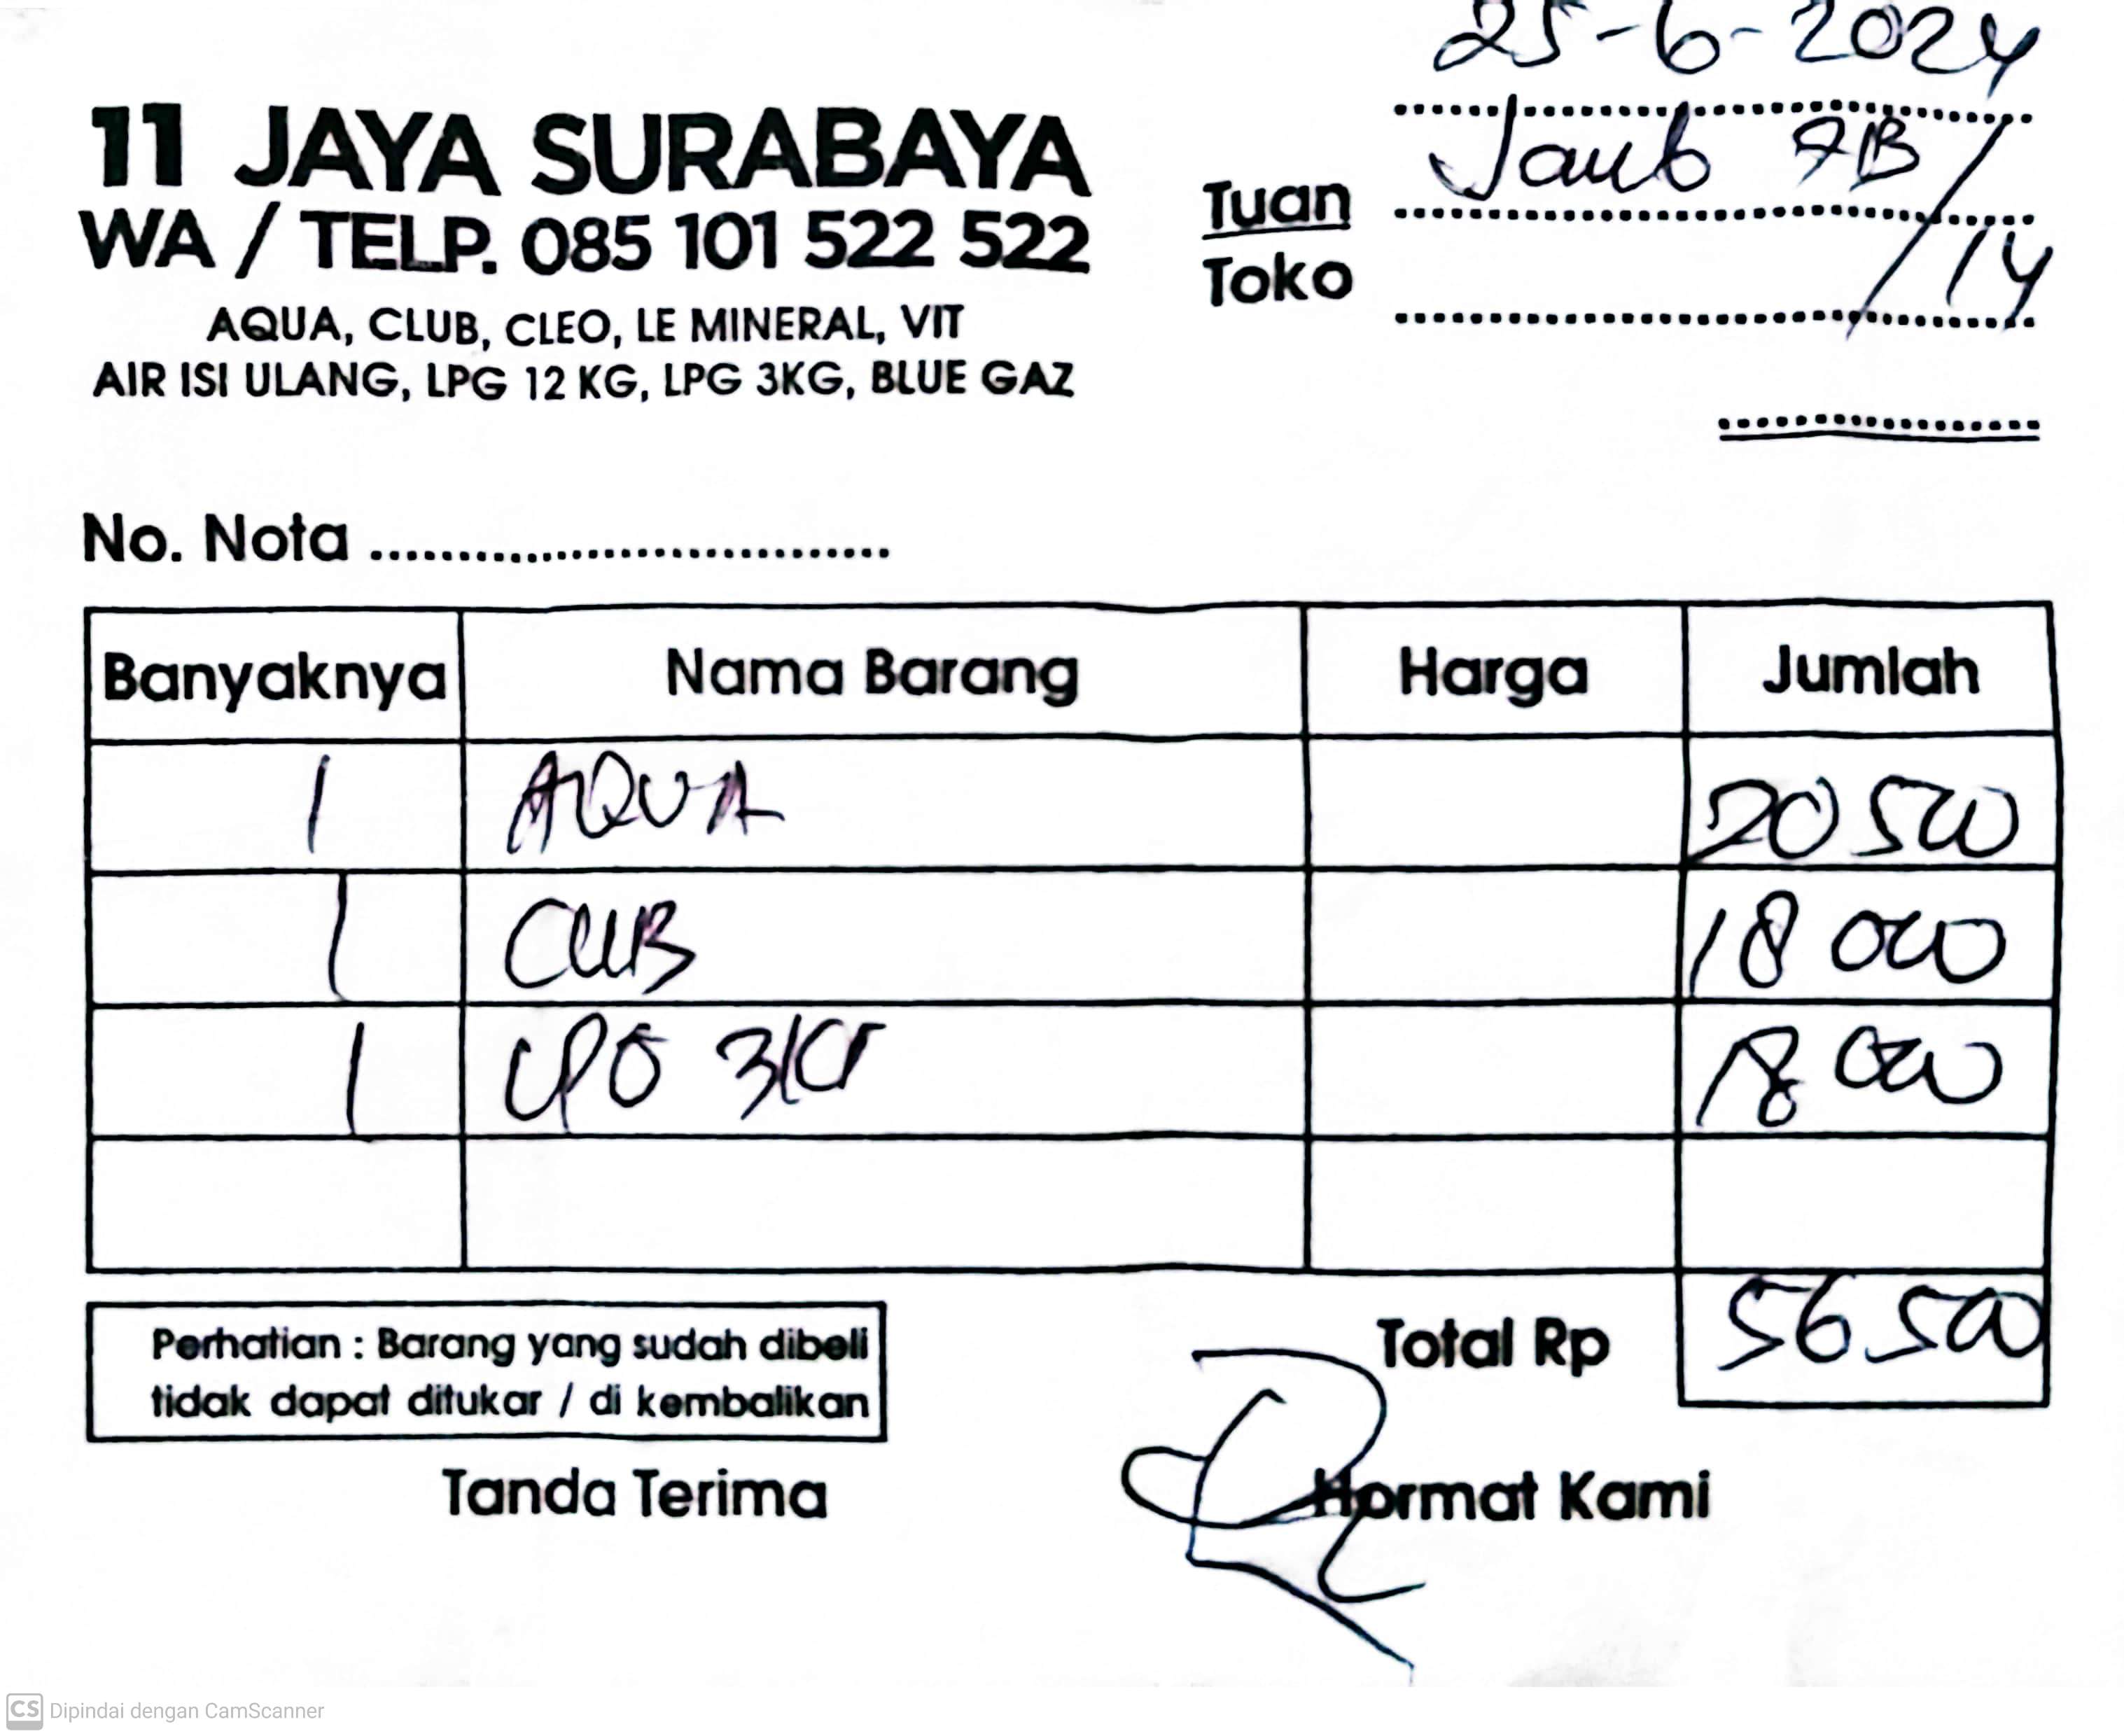 25-6-2024
11 JAYA SURABAYA
WA / TELP. 085 101 522 522
AQUA, CLUB, CLEO, LE MINERAL, VIT
AIR ISI ULANG, LPG 12 KG, LPG 3KG, BLUE GAZ
Tuan
Toko
/14
No. Nota
Banyaknya Nama Barang Harga Jumlah
1 AQUA 20 500
1 CLUB 18 000
1 LPG 3KG 18 000
Perhatian : Barang yang sudah dibeli
tidak dapat ditukar / di kembalikan
Total Rp 56 500
Tanda Terima Hormat Kami
CS Dipindai dengan CamScanner